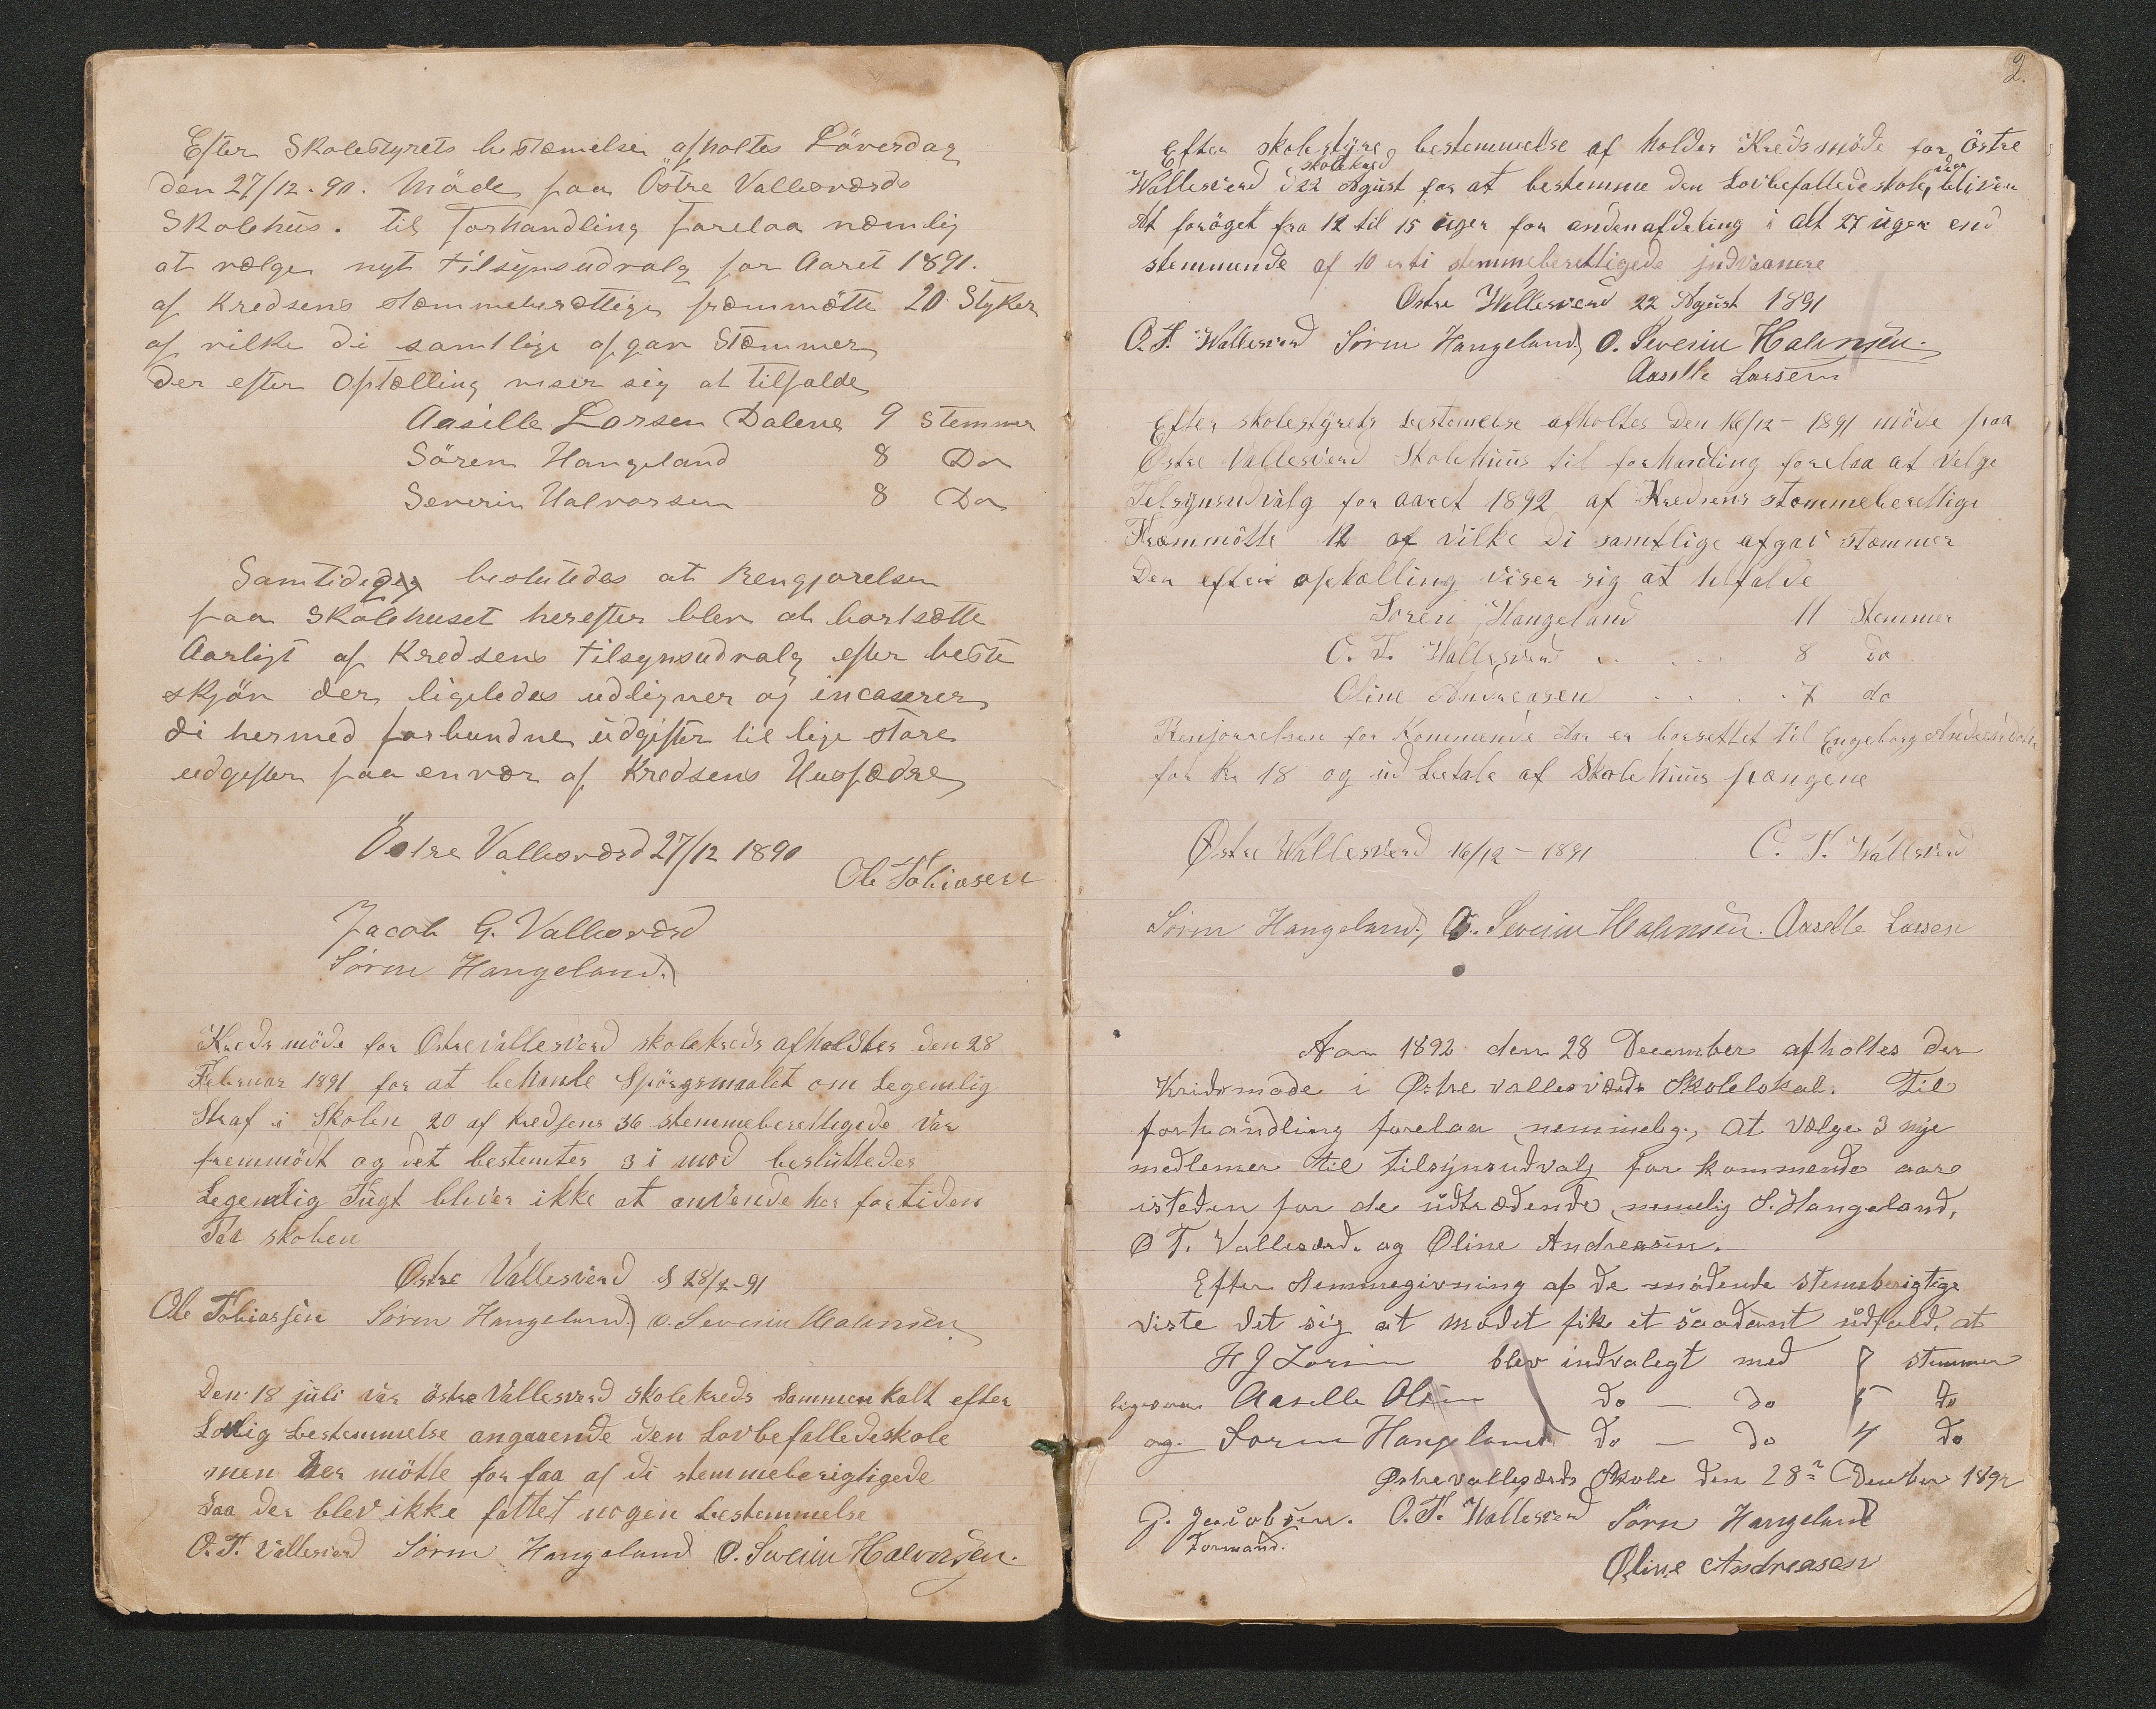 Efter Skolestyrets bestæmelse afholtes Löverdag
den 27/12. 90. Möde paa Östre Vallesværds
Skolehus. til forhandling forelaa næmlig
at vælge nyt tilsynsudvalg for Aaret 1891.
af Kredsens stæmmeberættige fræmmötte 20 Styker
af vilke di samtlige afgav Stæmmer
der efter Optælling viser sig at tilfalde
Aasille Larsen Dalene 9 Stemmer
Sören Hangeland 8 Do
Severin Halvorsen 8 Do
Samtidigen beslutedes at Rengjørelsen
paa Skolehuset herefter blev at bortsætte
Aarligt af Kredsens tilsynsudvalg efter beste
skjön der ligeledes udligner og incaserer
di hermed forbundne udgifter til lige store
udgifter paa envær af Kredsens Husfædre
Östre Vallesværd 27/12 1890
Ole Tobiasen
Jacob G. Vallesværd
Sörен Hangeland.
Kreds möde for Østre Vallesverd skolekreds afholdtes den 28
Februar 1891 for at behanle Spörgsmaalet om Legemlig
Straf i Skolen 20 af kredsens 36 stemmeberettigede var
fremmödt og det bestemtes 3 i mod besluttedes
Legemlig Tugt bliver ikke at anvende her for tiden
Paa skolen
Østre Vallesverd d 28/2-91
Ole Tobiassen Sören Hangeland. O. Severin Halvorsen
Den 18 juli var östre Vallesverd skolekreds Sammenkalt efter
Lovlig bestemmelse angaaende den Lovbefallede skole
men der mötte for faa af di stemmeberigtigede
saa der blev ikke fattet nogen bestemmelse
O. T. Vallesverd Sören Hangeland O. Severin Halvorsen.
2.
Efter skolestyre bestemmelse af holdes Kredsmöde for östre
skolekred
Wallesverd d 22 Agust for at bestemme den Lovbefallede skole bliver
At foröget fra 12 til 15 uger for anden afdeling i alt 27 uger end
stemmende af 10 er ti stemmeberettigede indvaanere
Østre Wallesverd 22 Agust 1891
O. T. Wallesverd Sören Hangeland O. Severin Halvorsen.
Aasille Larsen
Efter skolestyrets bestemelse afholtes Den 16/12 - 1891 möde paa
Østre Vallesverd Skolehuus til forhandling forelaa at velge
Tilsynsudvalg for aaret 1892 af Kredsens stæmmeberettige
Fræmmötte 12 af vilke Di samtlige afgav stæmmer
Der efter optælling viser sig at tilfalde
Sören Hangeland 11 Stemmer
O. T. Wallesverd . . . . 8 do
Oline Andreasen . . . . 7 do
Renjörrelsen for Kommende Aar er borsettet til Engeborg
for Kr 18 og ud betale af Skolehuus pængene
Østre Wallesverd 16/12 - 1891 O. T. Wallesverd
Sören Hangeland, O. Severin Halvorsen. Aasille Larsen
Aar 1892 den 28 December afholtes der
Kridsmøde i Østre vallesværds Skolelokal. Til
forhandling forelaa nemmelig, at vælge 3 nye
medlemer til tilsynsudvalg for kommende aar
isteden for de udtrædende, nemelig S. Hangeland,
O T. Vallesverd. og Oline Andreasen.
Efter stemmegivning af de mødende stemeberigtige
viste det sig at mødet fik et saadant udfald, at
H J Larsen blev indvalegt med 7 stemmer
ligesom Aasille Olsen do — do 5 do
og. Sören Hangeland do — do 4 do
Østrevallesværds Skole den 28de Desember 1892
G. Jacobsen. O. T. Wallesverd Sören Hangeland
Formand.
Øline Andreasen